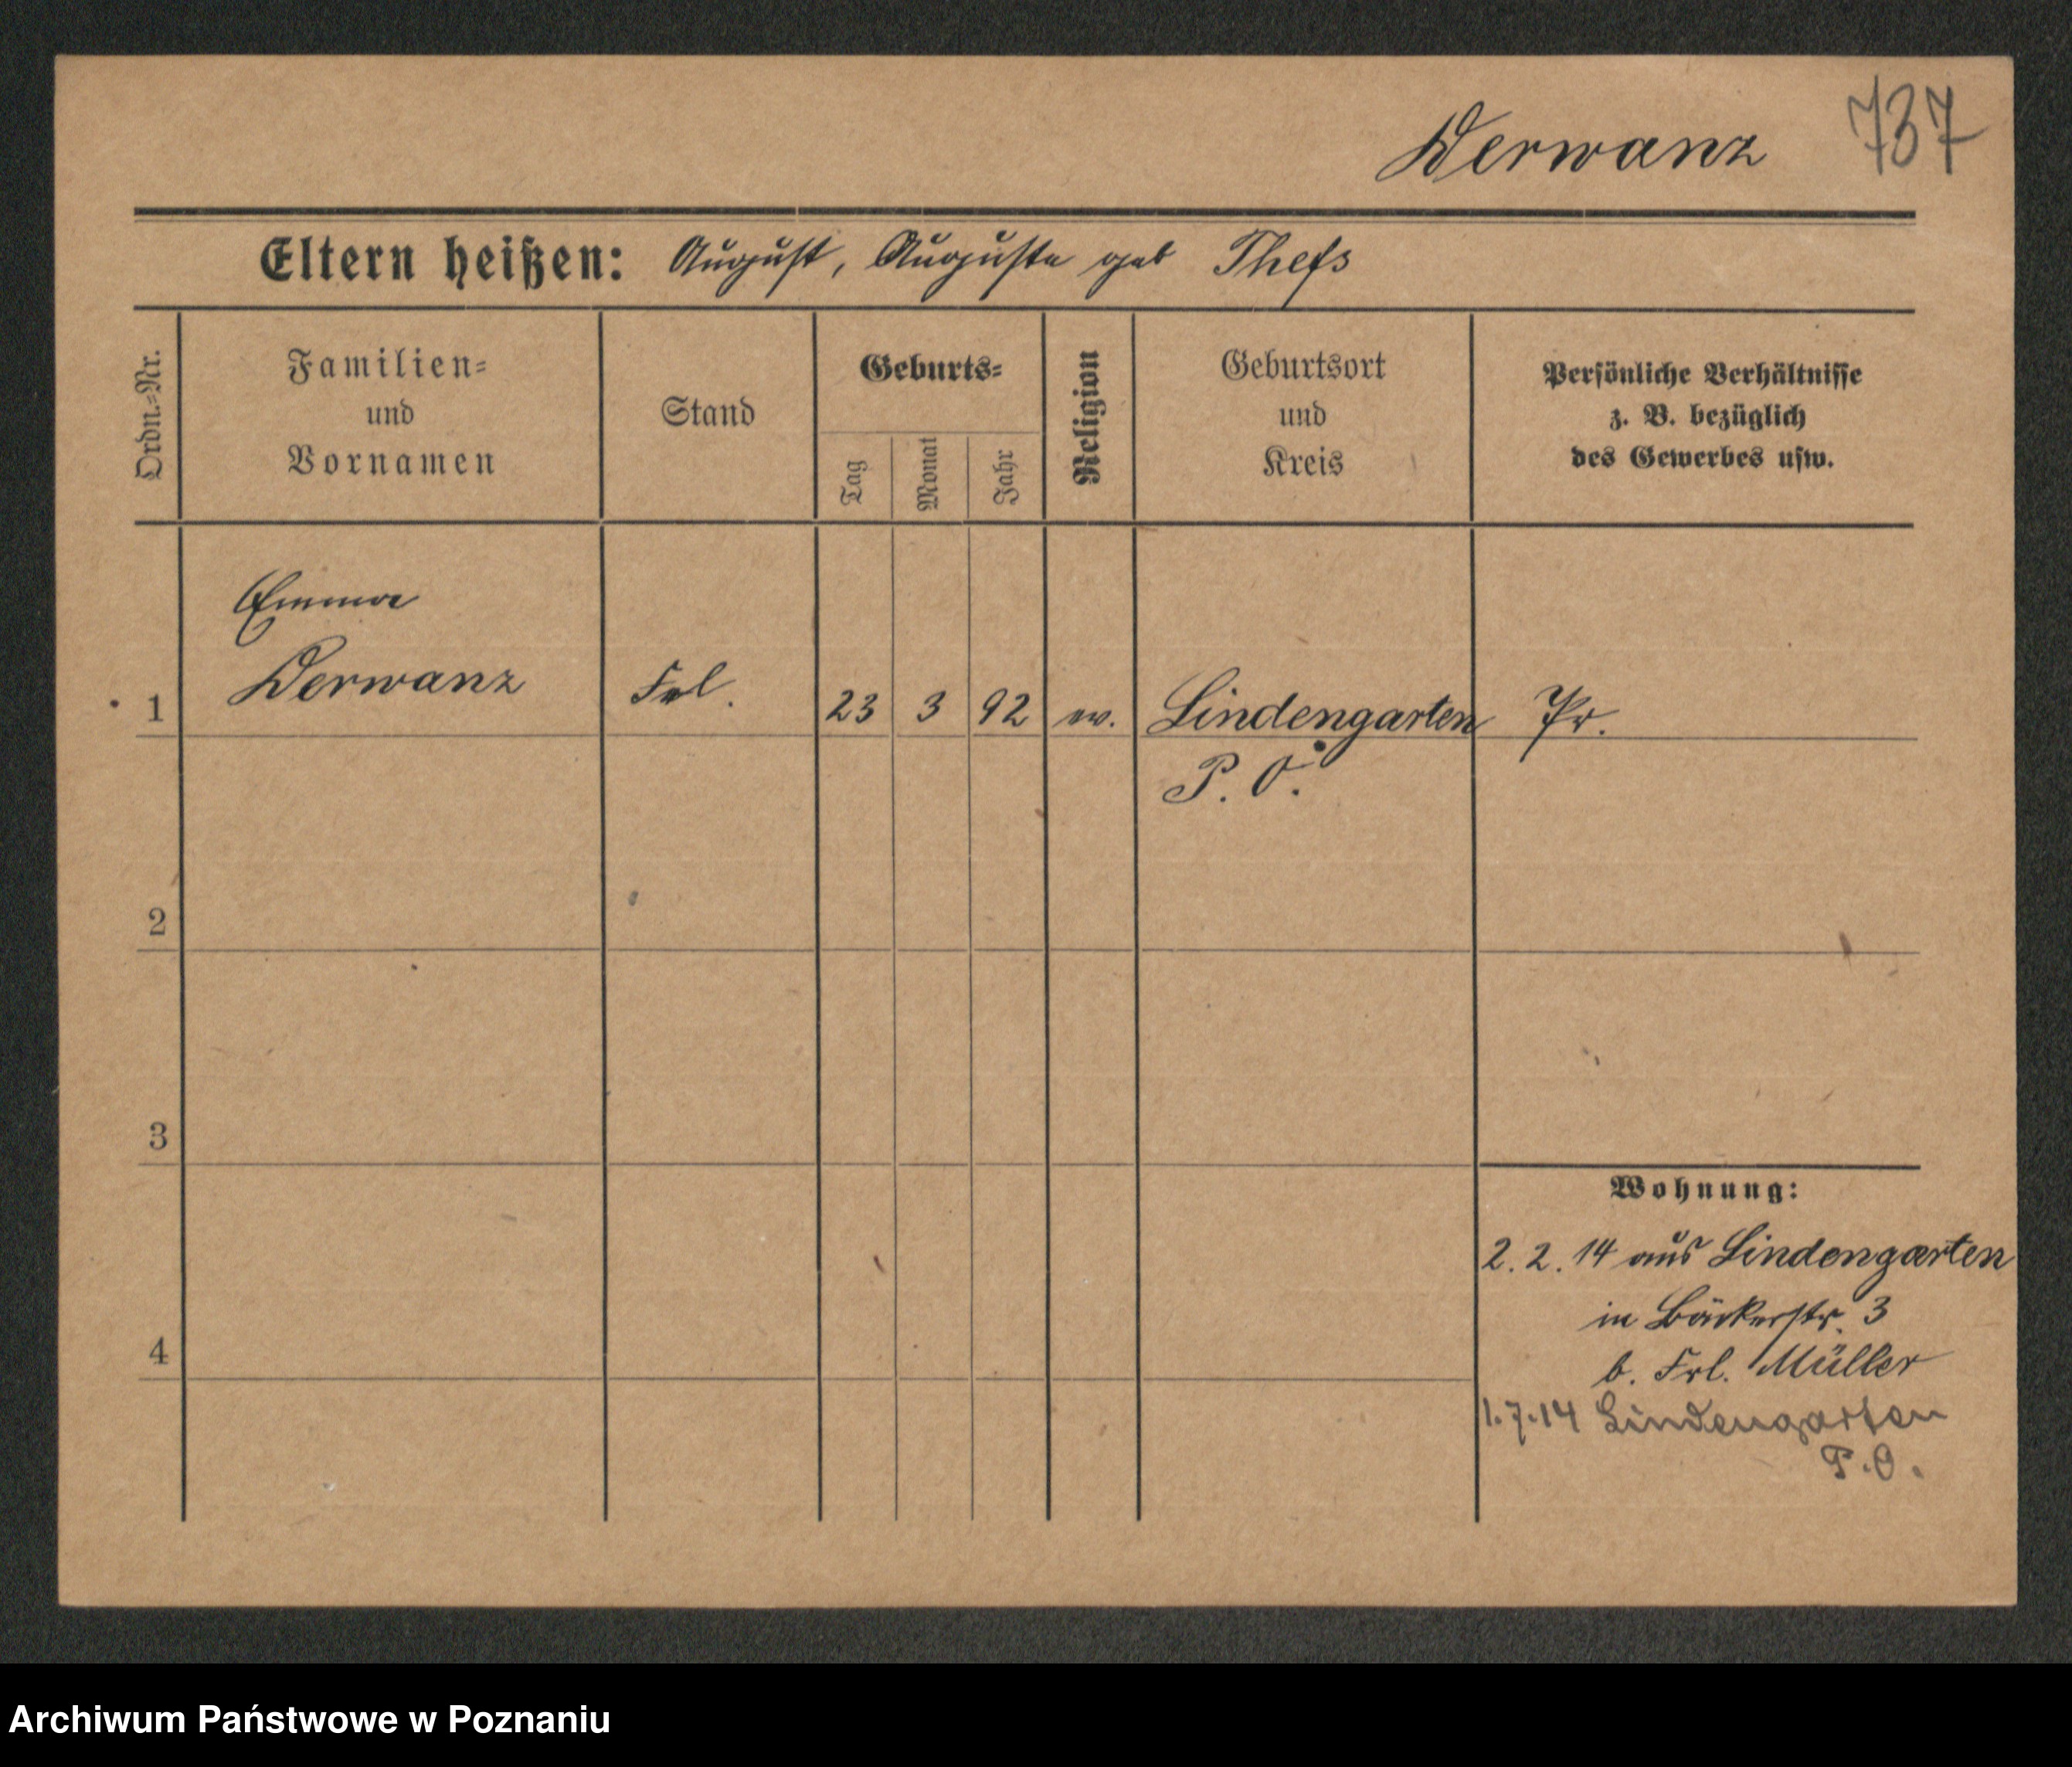 Derwanz 737
Eltern heißen: August, Auguste geb Thefs
Ordn.-Nr.
Familien-
und
Vornamen
Stand
Geburts-
Tag
Monat
Jahr
Religion
Geburtsort
und
Kreis
Persönliche Verhältnisse
z. B. bezüglich
des Gewerbes usw.
Emma
1 Derwanz Frl. 23 3 92 ev. Lindengarten Pr.
P. O.
2
3
Wohnung:
2. 2. 14 aus Lindengarten
in Bäckerstr. 3
4
b. Frl. Müller
1.7.14 Lindengarten
P.O.
Archiwum Państwowe w Poznaniu